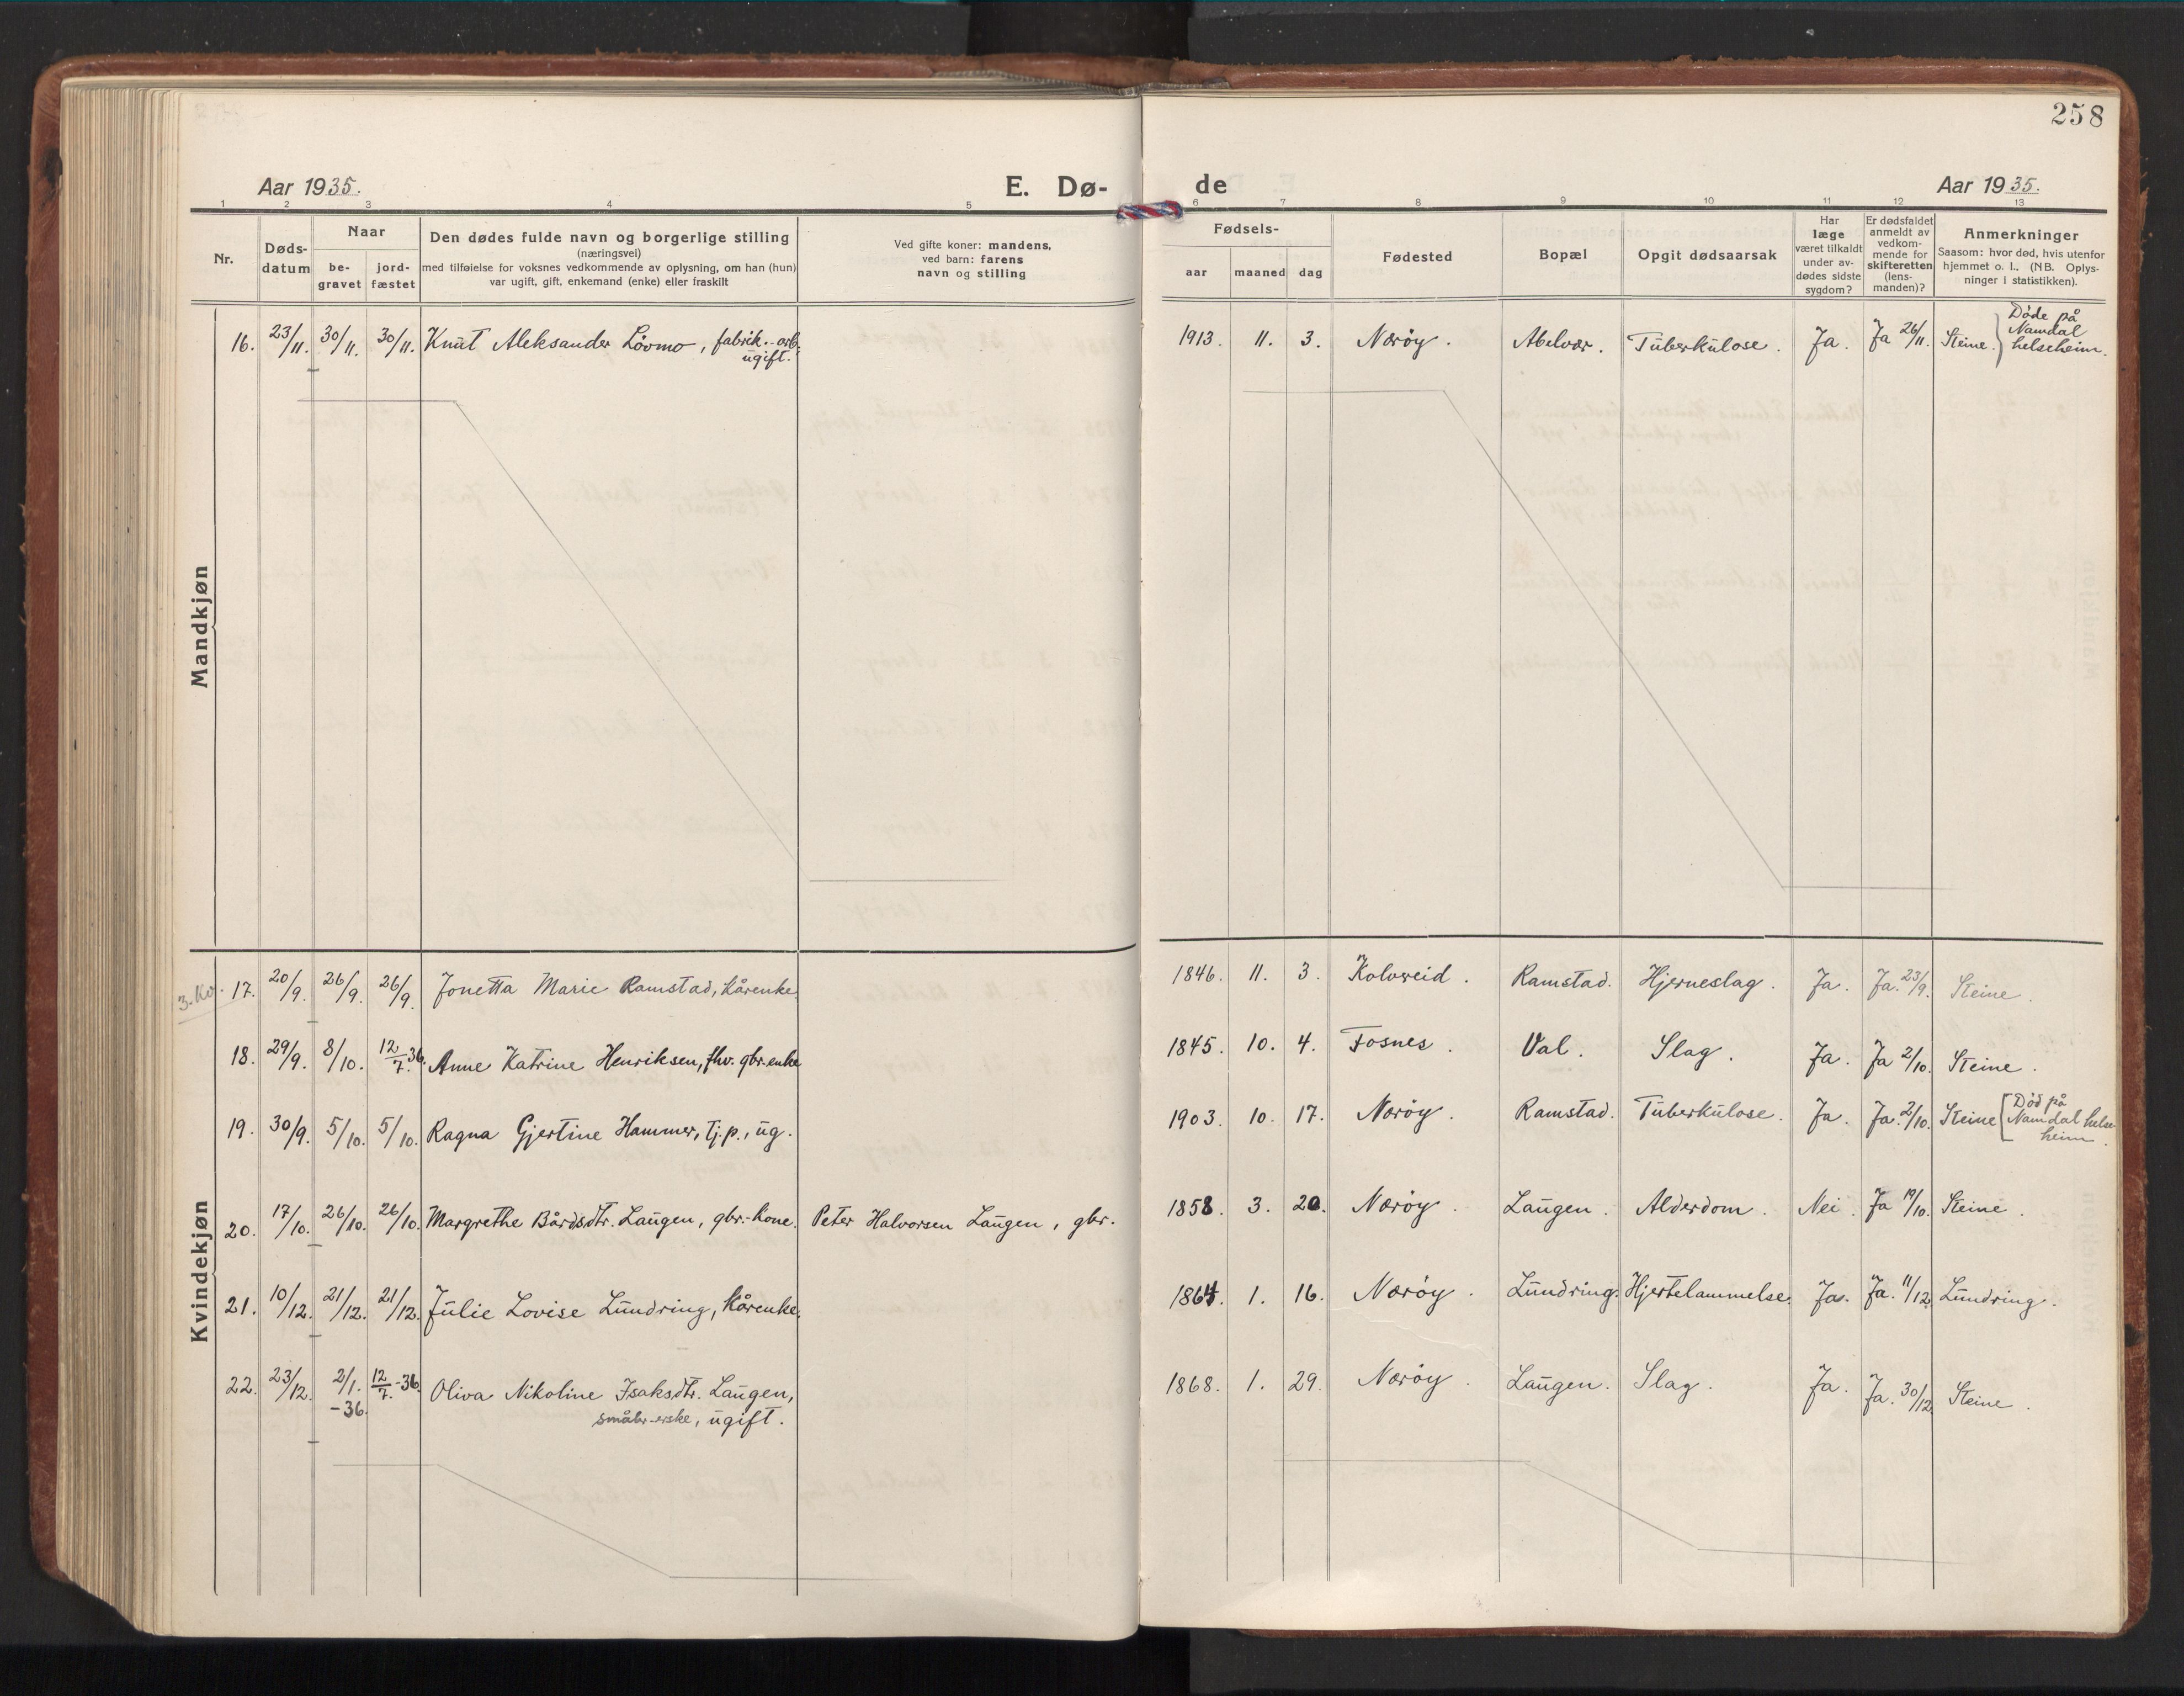 258
Aar 1935.
E. Dø-
de
Aar 1935.
1 2 3 4 5 6 7 8 9 10 11 12 13
Nr.
Døds-
datum
Naar
be-
gravet
jord-
fæstet
Den dødes fulde navn og borgerlige stilling
(næringsvei)
med tilføielse for voksnes vedkommende av oplysning, om han (hun)
var ugift, gift, enkemand (enke) eller fraskilt
Ved gifte koner: mandens,
ved barn: farens
navn og stilling
Fødsels-
aar maaned dag
Fødested
Bopæl
Opgit dødsaarsak
Har
læge
været tilkaldt
under av-
dødes sidste
sygdom?
Er dødsfaldet
anmeldt av
vedkom-
mende for
skifteretten
(lens-
manden)?
Anmerkninger
Saasom: hvor død, hvis utenfor
hjemmet o. l.. (NB. Oplys-
ninger i statistikken).
Mandkjøn
16. 23/11. 30/11. 30/11. Knut Aleksander Lövmo, fabrik.-arb.
ugift.
1913. 11. 3. Næröy. Abelvær. Tuberkulose. Ja. Ja 26/11. Steine.
Döde på
Namdal
helseheim.
Kvindekjøn
3. Kv. 17. 20/9. 26/9. 26/9. Jonetta Marie Ramstad, kårenke. 1846. 11. 3. Kolvereid. Ramstad. Hjerneslag. Ja. Ja. 23/9. Steine.
18. 29/9. 8/10. 12/7.-36. Anne Katrine Henriksen, fhv. gbr.enke 1845. 10. 4. Fosnes. Val. Slag. Ja. Ja 2/10. Steine.
19. 30/9. 5/10. 5/10. Ragna Gjertine Hammer, tj.p., ug. 1903. 10. 17. Næröy. Ramstad. Tuberkulose. Ja. Ja. 2/10. Steine
Död på
Namdal helse
heim.
20. 17/10. 26/10. 26/10. Margrethe Bårdsdtr. Laugen, gbr.-kone. Peter Halvorsen Laugen, gbr. 1858. 3. 20. Næröy. Laugen. Alderdom. Nei. Ja 19/10. Steine.
21. 10/12. 21/12. 21/12. Julie Lovise Lundring, kårenke. 1864. 1. 16. Næröy. Lundring. Hjertelammelse. Ja. Ja. 11/12. Lundring.
22. 23/12. 2/1. -36. 12/7.-36. Oliva Nikoline Isaksdtr. Laugen,
småbr-erske, ugift.
1868. 1. 29. Næröy. Laugen. Slag. Ja. Ja. 30/12. Steine.